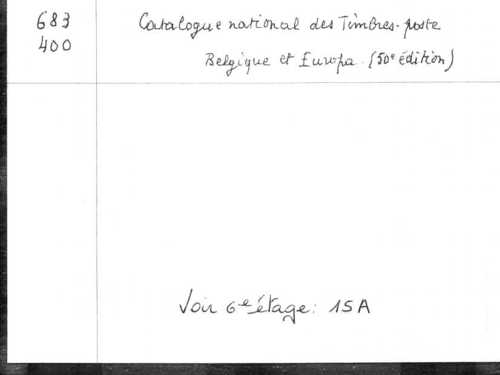 683 Catalogue national des Timbres-poste
400
Belgique et Europa. (50e édition)
Voir 6e étage: 15A